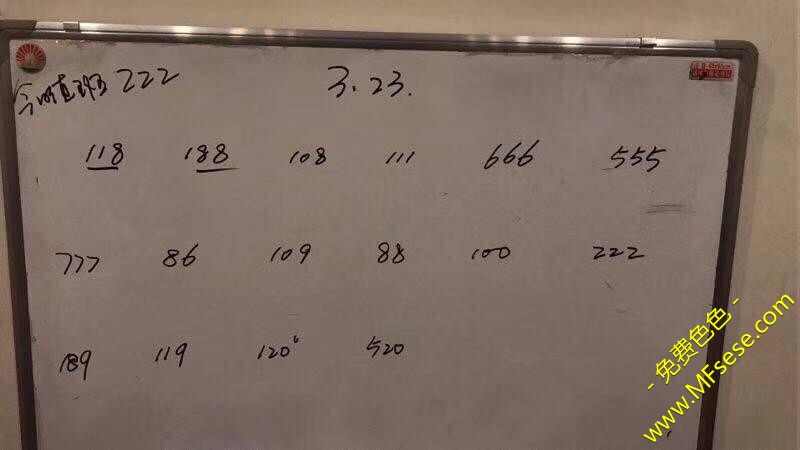 今晚值班222 3.23.
118 188 108 111 666 555
777 86 109 88 100 222
189 119 120 520
- 免费色色 -
www.MFsese.com